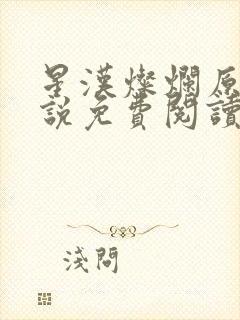 星漢燦爛原
說免費閱讀
淺問